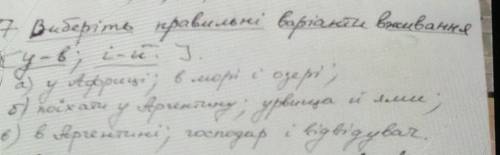 7 Виберіть правильні варіанти вживання
[у-в; і-й. ].
а) у Африці; в морі і озері;
б) поїхати у Аргентину; урвища й ями;
в) в Аргентині; господар і відвідувач.